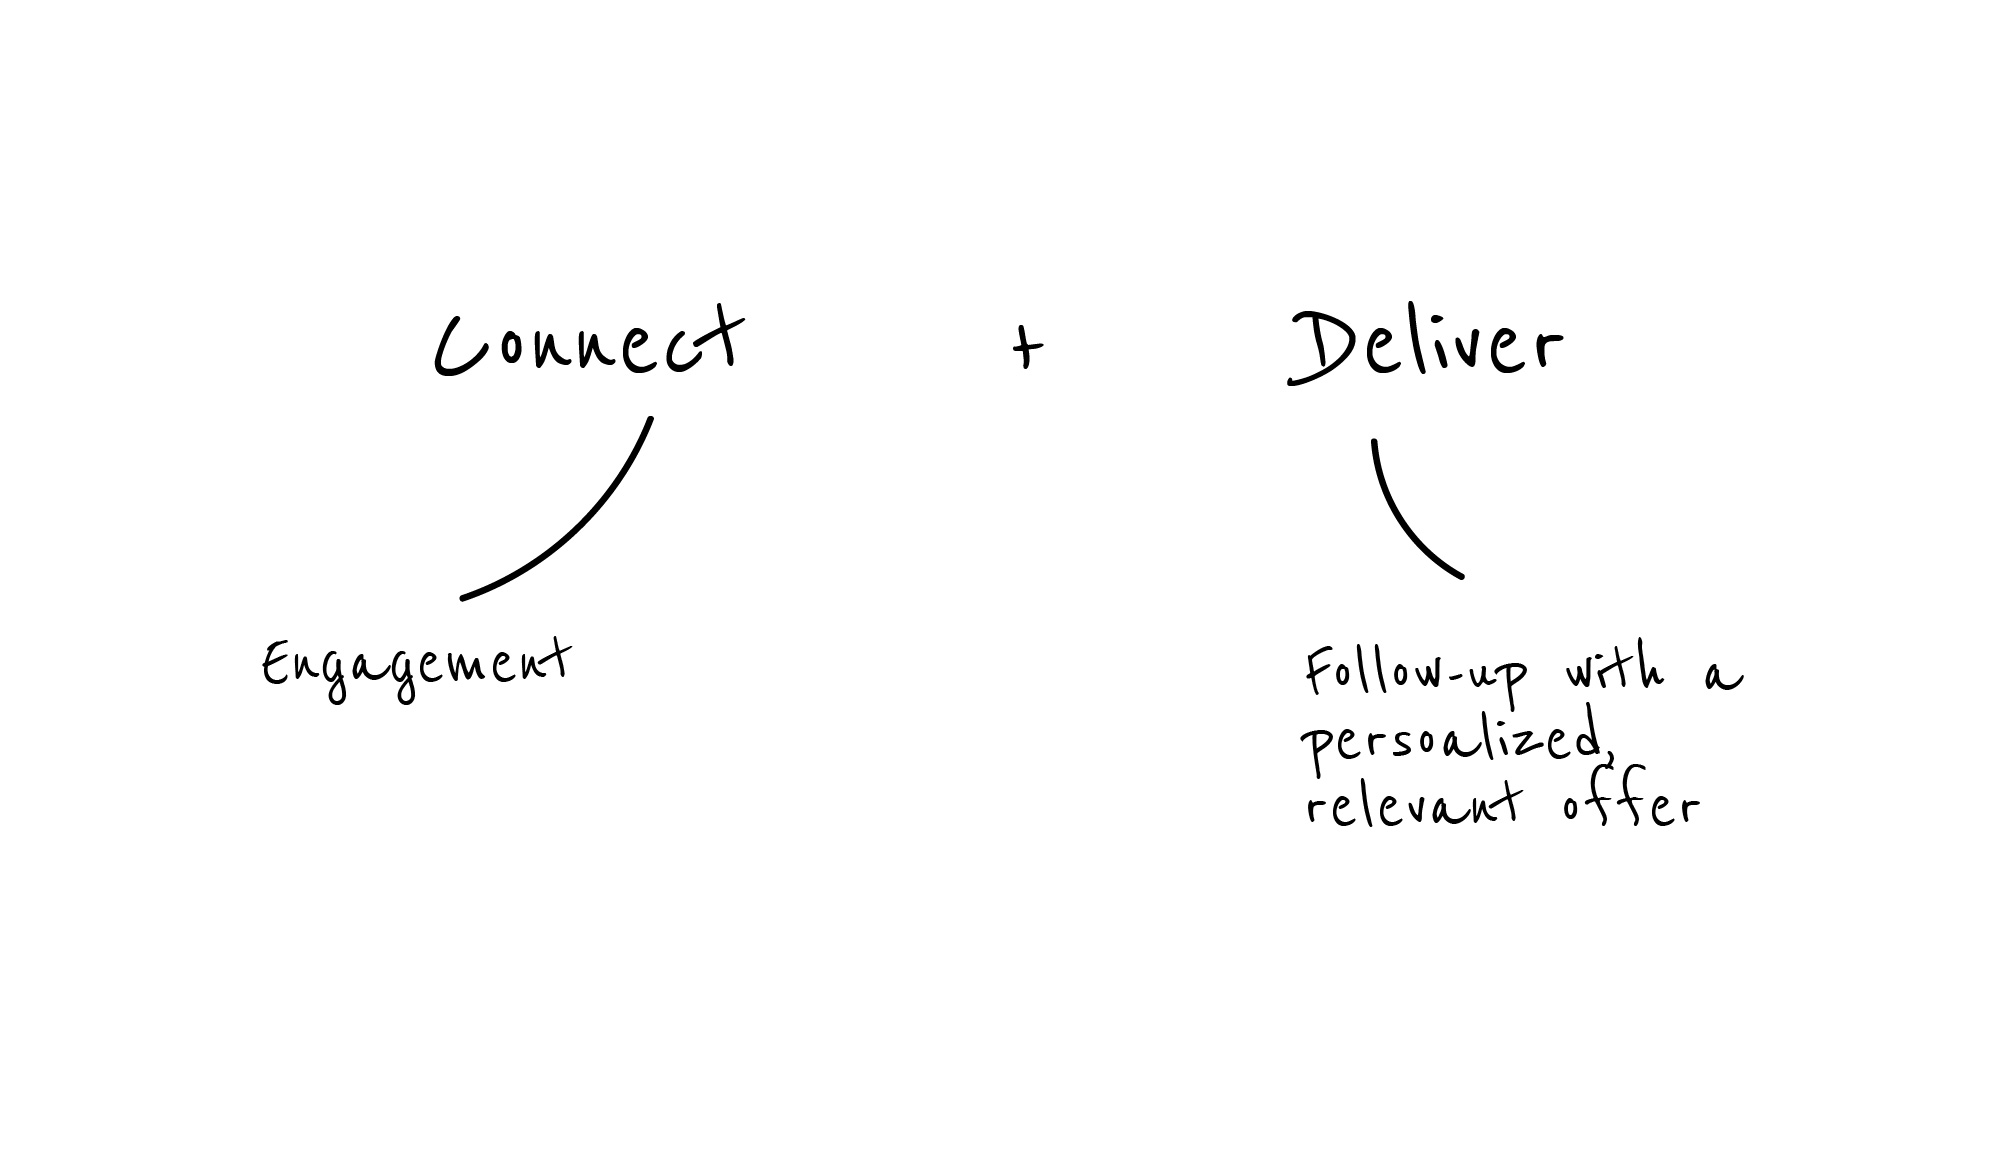 Connect + Deliver
Engagement
Follow-up with a
persoalized,
relevant offer